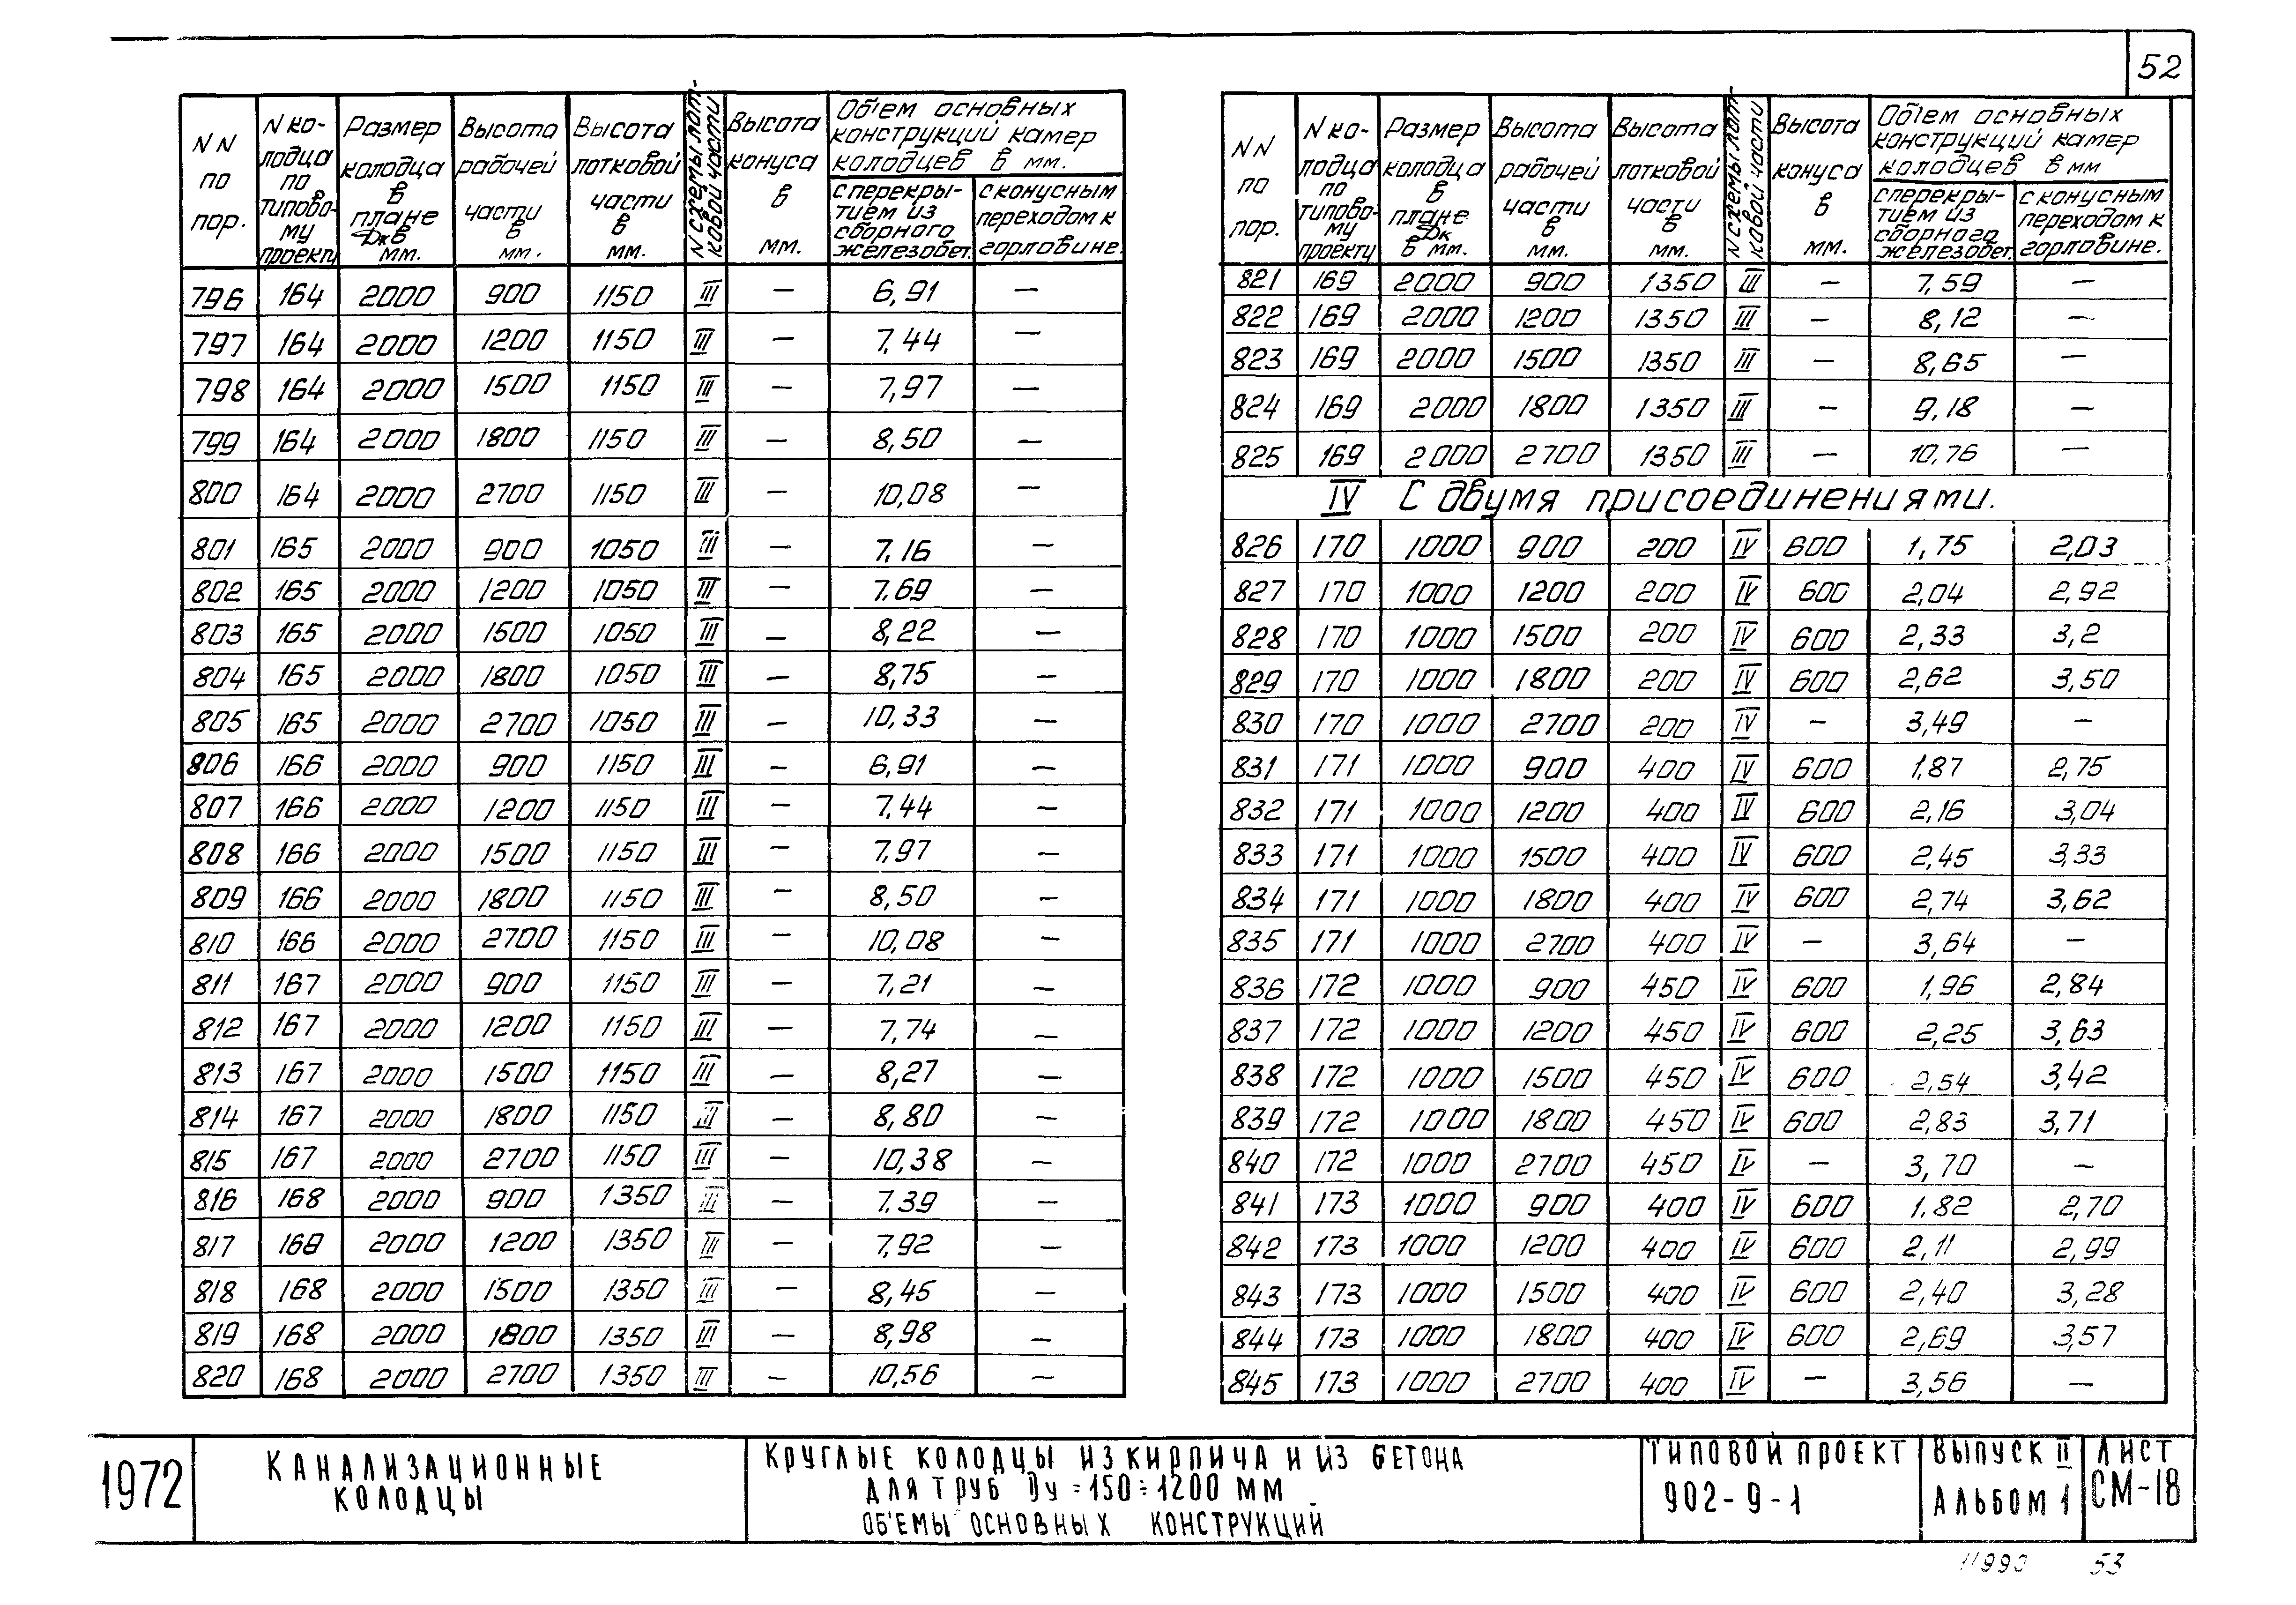 52
NN по пор. | N колодца по типовому проекту | Размер колодца в плане Dкв мм. | Высота рабочей части в мм. | Высота лотковой части в мм. | N схемы лотковой части | Высота конуса в мм. | Объем основных конструкций камер колодцев в мм. | с перекрытием из сборного железобет. | с конусным переходом к горловине.
796 164 2000 900 1150 III — 6,91 —
797 164 2000 1200 1150 III — 7,44 —
798 164 2000 1500 1150 III — 7,97 —
799 164 2000 1800 1150 III — 8,50 —
800 164 2000 2700 1150 III — 10,08 —
801 165 2000 900 1050 III — 7,16 —
802 165 2000 1200 1050 III — 7,69 —
803 165 2000 1500 1050 III — 8,22 —
804 165 2000 1800 1050 III — 8,75 —
805 165 2000 2700 1050 III — 10,33 —
806 166 2000 900 1150 III — 6,91 —
807 166 2000 1200 1150 III — 7,44 —
808 166 2000 1500 1150 III — 7,97 —
809 166 2000 1800 1150 III — 8,50 —
810 166 2000 2700 1150 III — 10,08 —
811 167 2000 900 1150 III — 7,21 —
812 167 2000 1200 1150 III — 7,74 —
813 167 2000 1500 1150 III — 8,27 —
814 167 2000 1800 1150 III — 8,80 —
815 167 2000 2700 1150 III — 10,38 —
816 168 2000 900 1350 III — 7.39 —
817 168 2000 1200 1350 III — 7,92 —
818 168 2000 1500 1350 III — 8,45 —
819 168 2000 1800 1350 III — 8,98 —
820 168 2000 2700 1350 III — 10,56 —
NN по пор. | N колодца по типовому проекту | Размер колодца в плане Dк в мм. | Высота рабочей части в мм. | Высота лотковой части в мм. | N схемы лотковой части | Высота конуса в мм. | Объем основных конструкций камер колодцев в мм | с перекрытием из сборного железобет. | с конусным переходом к горловине.
821 169 2000 900 1350 III — 7,59 —
822 169 2000 1200 1350 III — 8,12 —
823 169 2000 1500 1350 III — 8,65 —
824 169 2000 1800 1350 III — 9,18 —
825 169 2000 2700 1350 III — 10,76 —
IV С двумя присоединениями.
826 170 1000 900 200 IV 600 1,75 2,03
827 170 1000 1200 200 IV 600 2,04 2,92
828 170 1000 1500 200 IV 600 2,33 3,2
829 170 1000 1800 200 IV 600 2,62 3,50
830 170 1000 2700 200 IV — 3,49 —
831 171 1000 900 400 IV 600 1,87 2,75
832 171 1000 1200 400 IV 600 2,16 3,04
833 171 1000 1500 400 IV 600 2,45 3,33
834 171 1000 1800 400 IV 600 2,74 3,62
835 171 1000 2700 400 IV — 3,64 —
836 172 1000 900 450 IV 600 1,96 2,84
837 172 1000 1200 450 IV 600 2,25 3,63
838 172 1000 1500 450 IV 600 2,54 3,42
839 172 1000 1800 450 IV 600 2,83 3,71
840 172 1000 2700 450 IV — 3,70 —
841 173 1000 900 400 IV 600 1.82 2,70
842 173 1000 1200 400 IV 600 2,11 2,99
843 173 1000 1500 400 IV 600 2,40 3,28
844 173 1000 1800 400 IV 600 2,69 3,57
845 173 1000 2700 400 IV — 3,56 —
1972
КАНАЛИЗАЦИОННЫЕ
КОЛОДЦЫ
КРУГЛЫЕ КОЛОДЦЫ ИЗ КИРПИЧА И ИЗ БЕТОНА
ДЛЯ ТРУБ Dу=150÷1200 ММ
ОБ'ЕМЫ ОСНОВНЫХ КОНСТРУКЦИЙ
ТИПОВОЙ ПРОЕКТ
902-9-1
ВЫПУСК II
АЛЬБОМ 1
ЛИСТ
СМ-18
53